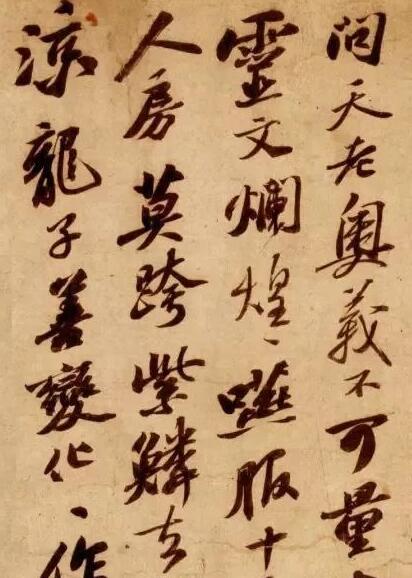 問天老奥義不可量
靈文爛煌煌嚥服十
人房莫跨紫鱗去
涼龍子善變化作